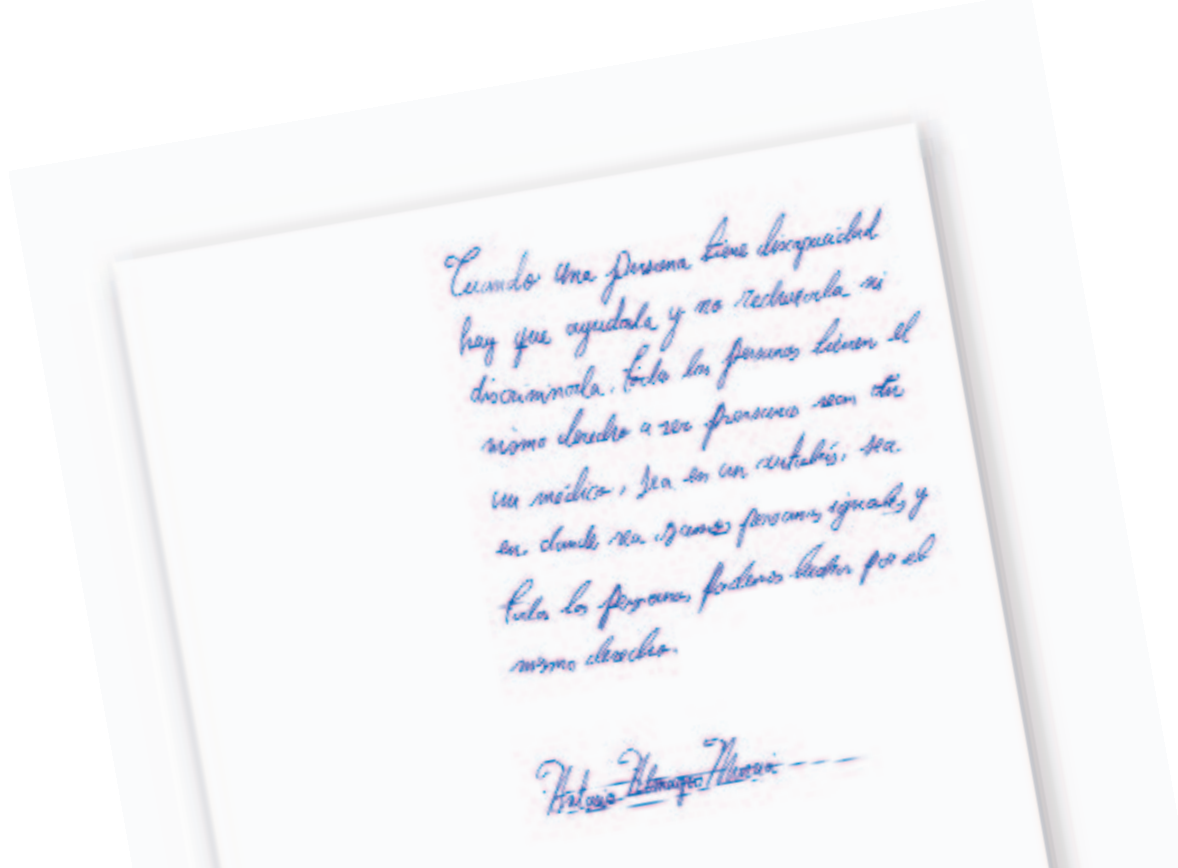 Cuando una persona tiene discapacidad
hay que ayudarla y no rechazarla ni
discriminarla. todas las personas tienen el
mismo derecho a ser personas sean
un médico, sea en un autobús, sea
en donde sea somos personas iguales y
todas las personas podemos luchar por el
mismo derecho.
Antonio Almagro